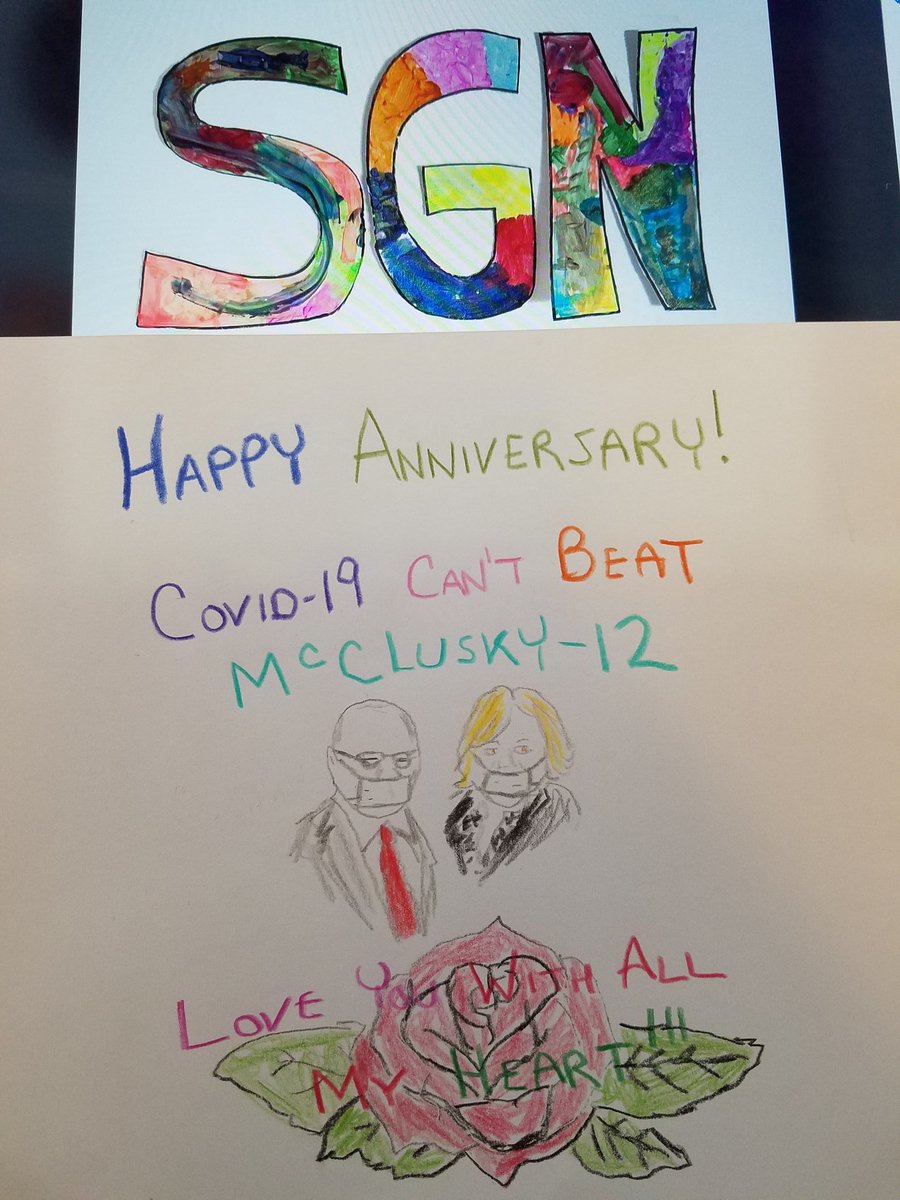 SGN
HAPPY ANNIVERSARY!
COVID-19 CAN'T BEAT
McCLUSKY-12
LOVE YOU WITH ALL
MY HEART!!!